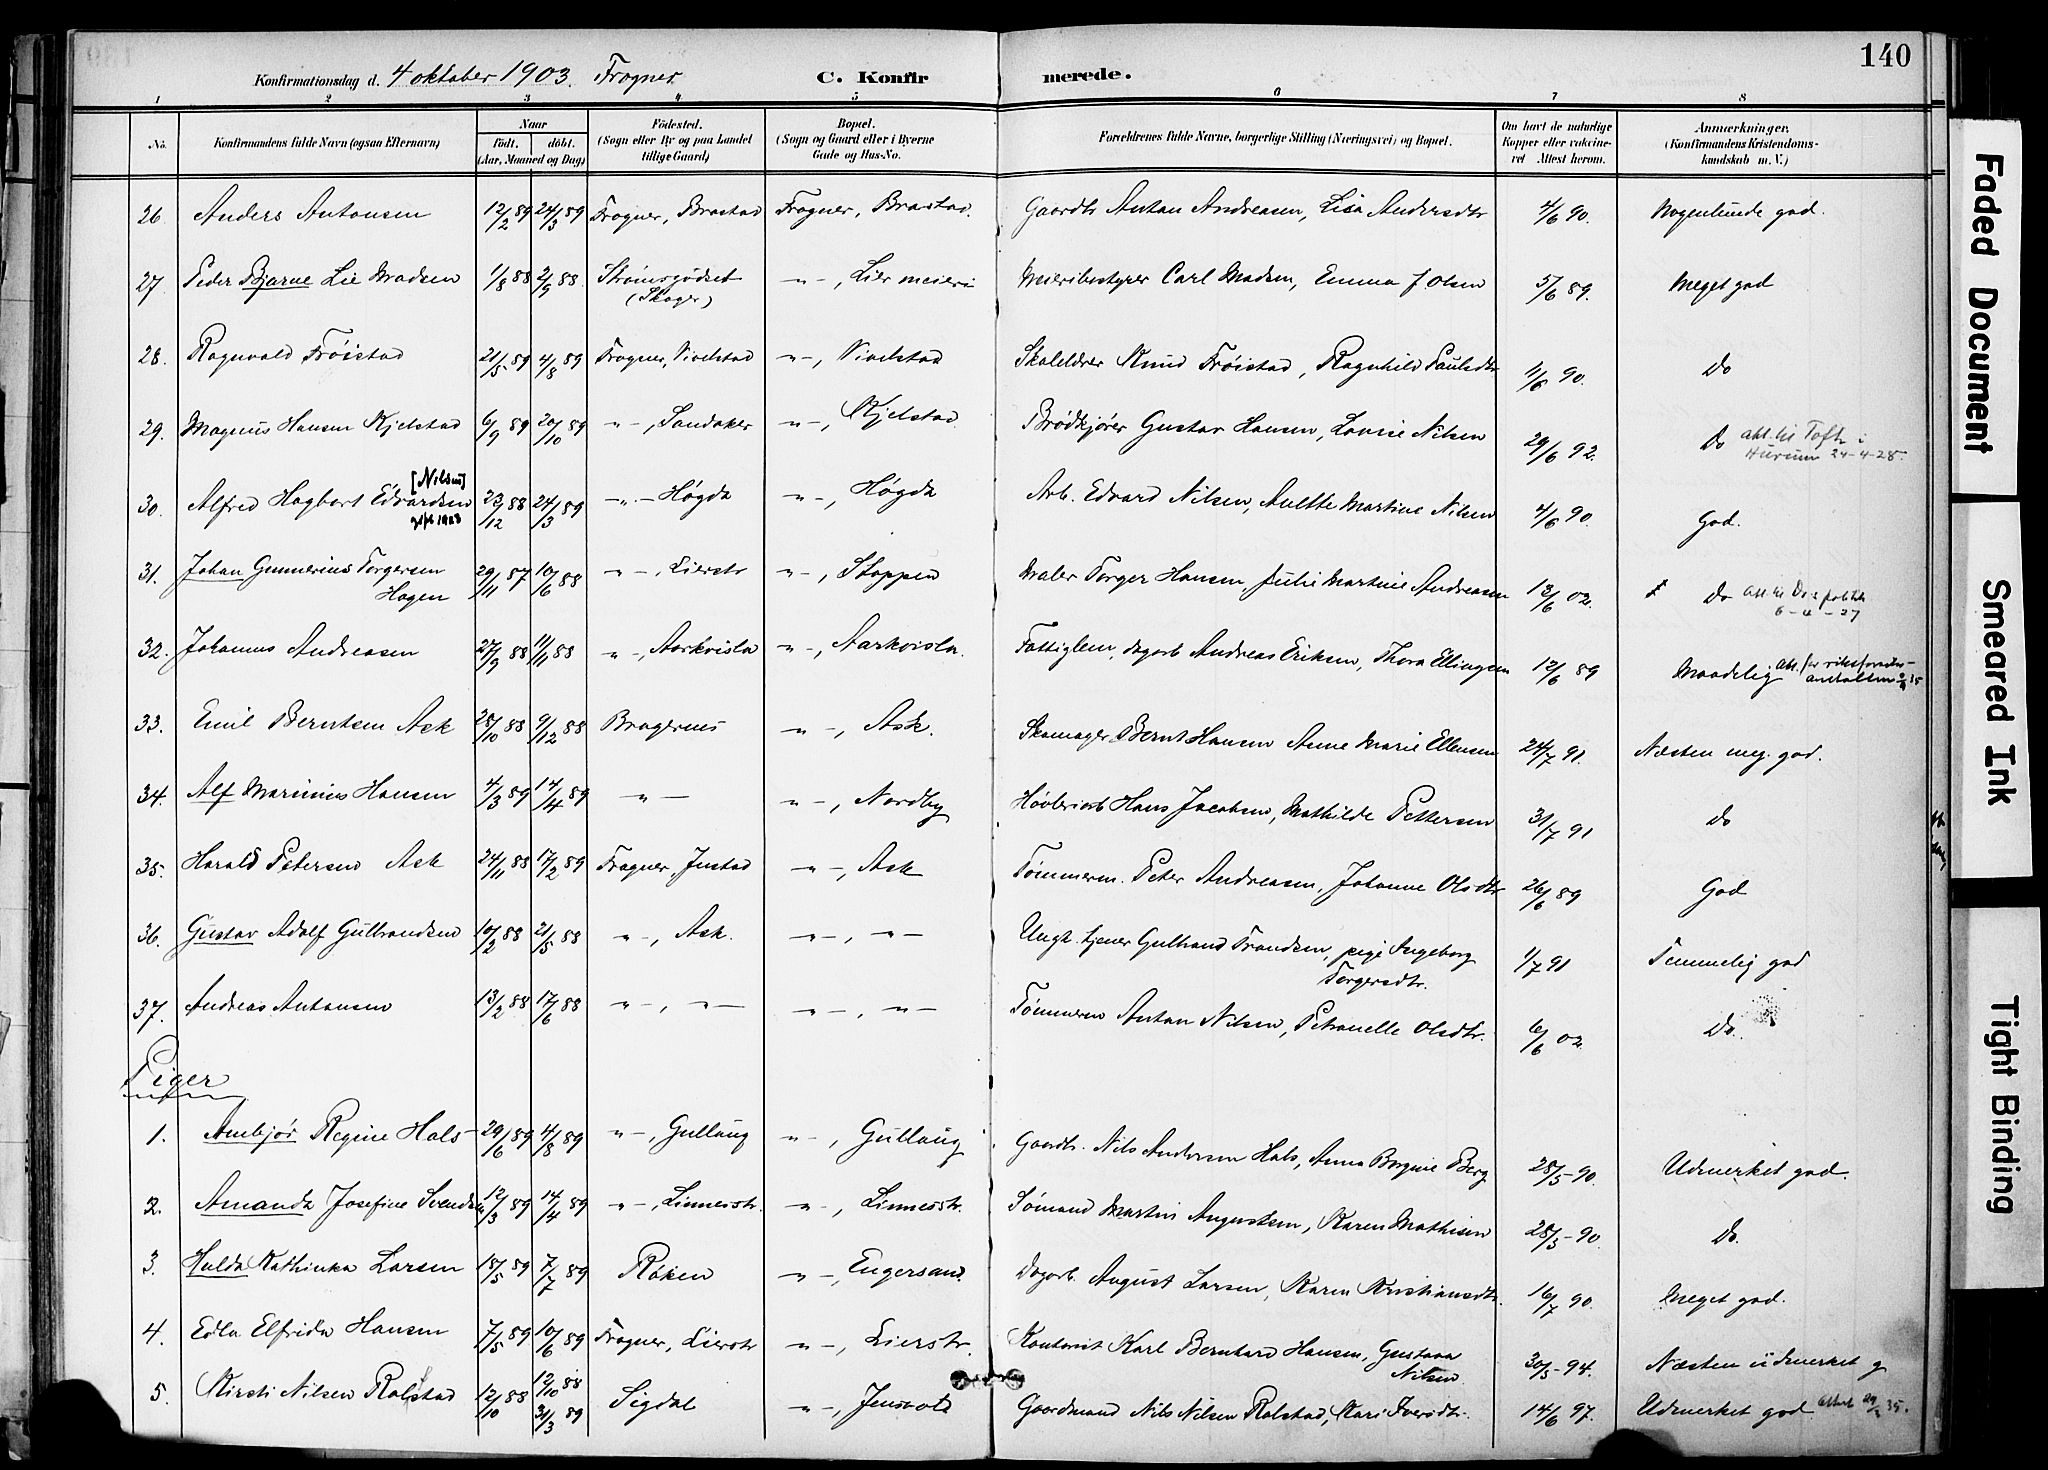 140
Konfirmationsdag d. 4 oktober 1903. Frogner. C. Konfirmerede.
1 2 3 4 5 6 7 8
No. Konfirmandens fulde Navn (ogsaa Efternavn) Naar født. døbt. (Aar, Maaned og Dag) Fødested. (Sogn eller By og paa Landet tillige Gaard) Bopæl. (Sogn og Gaard eller i Byerne Gade og Hus-No. Forældrenes fulde Navne, borgerlige Stilling (Næringsvei) og Bopæl. Om havt de naturlige Kopper eller vakcineret. Attest herom. Anmærkninger. (Konfirmandens Kristendomskundskab m. V.)
26. Anders Antonsen 12/2 89 24/3 89 Frogner, Brastad Frogner, Brastad. Gaardbr Anton Andreasen, Lisa Andersdtr 4/6 90. Nogenlunde god.
27. Peder Bjarne Lie Madsen 1/8 88 2/9 88. Strømsgodset (Skoger) -"-, Lier meieri Meieribestyrer Carl Madsen, Emma J. Olsen 5/6 89. Meget god
28. Ragnvald Frøistad 21/5 89 4/8 89 Frogner, Vivelstad -"-, Vivelstad Skolelærer Knud Frøistad, Ragnhild Paulsdtr 11/6 90. Do
29. Magnus Hansen Kjelstad 6/9 89 20/10 89 -"-, Sandaker -"-, Kjelstad. Brødkjører Gustav Hansen, Lovise Nilsen 29/6 92. Do att. til Tofte i Hurum 24-4-28.
30. Alfred Hagbart Edvardsen [Nilsen] 23/12 88 24/3 89 -"- Høgda -"-, Høgda Arb. Edvard Nilsen, Anette Martine Nilsen 4/6 90. God.
31. Johan Gunnerius Torgersen Hagen 29/11 87 10/6 88 -"-, Lierstr -"-, Stoppen Maler Torger Hansen, Julie Martine Andreasen 13/6 02. Do 6-4-27
32. Johannes Andreasen 27/9 88 11/11 88 -"-, Aarkvisla -"-, Aarkvisla. Fattiglem, dagarb Andreas Eriksen, Thora Ellingsen 12/6 89 Maadelig
33. Emil Berntsen Ask 28/10 88 9/12 88 Bragernes -"-, Ask. Skomager Bernt Hansen Anne Marie Ellensen 24/7 91. Næsten meg. god.
34. Alf Marinius Hansen 4/3 89 14/4 89 -"- -"-, Nordby Høvleriarb Hans Jacobsen, Mathilde Pettersen 31/7 91 Do
35. Harald Petersen Ask 24/11 88 17/2 89 Frogner, Justad -"-, Ask Tømmerm. Peter Andreasen, Johanne Olsdtr 26/6 89 God
36. Gustav Adolf Gulbrandsen 10/2 88 21/5 88 -"-, Ask. -"-, -"- Ungk. tjener Gulbrand Frandsen, pige Ingeborg Torgersdtr. 1/7 91 Temmelig god
37. Andreas Antonsen 13/2 88 17/6 88 -"-, -"- -"-, -"- Tømmerm Anton Nilsen, Petronelle Olsdtr. 6/6 02. Do.
Piger
1. Ambjør Regine Hals 29/6 89 4/8 89 -"-, Gullaug -"-, Gullaug Gaardbr. Nils Andersen Hals, Anna Bergine Berg 28/5-90. Udmerket god.
2. Amanda Josefine Svendsen 12/3 89 14/4 89 -"-, Linnesstr. -"-, Linnesstr. Sømand Martin Augustsen, Karen Mathisen 28/5-90. Do.
3. Hulda Kathinka Larsen 18/5 89 7/7 89 Røken -"-, Engersand. Dagarb. August Larsen, Karen Kristiansdtr. 16/7 90. Meget god.
4. Edla Elfrida Hansen 7/5 89 10/6 89 Frogner, Lierstr -"-, Lierstr. Kontorist Karl Bernhard Hansen, Gustava Nilsen. 30/5-94. Næsten udmerket g
5. Kirsti Nilsen Rolstad 12/10 88 12/10 88 31/3 89 Sigdal -"-, Jensvold Gaardmand Nils Nilsen Rolstad, Kari Iversdtr. 14/6 97. Udmerket god
Faded Document
Smeared Ink
Tight Binding